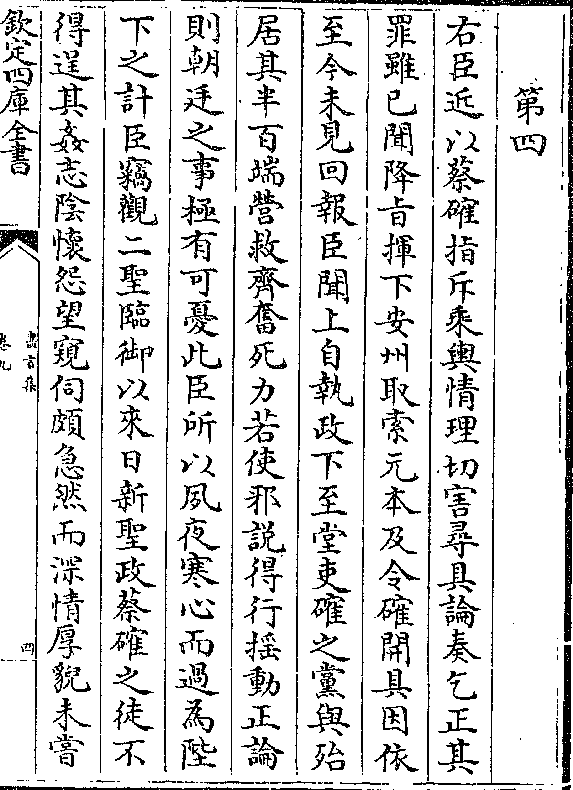 第四
右臣近以蔡確指斥乘輿情理切害尋具論奏乞正其
罪雖已聞降㫖揮下安州取索元本及令確開具因依
至今未見回報臣聞上自執政下至堂吏確之黨與殆
居其半百端營救齊奮死力若使邪說得行揺動正論
則朝廷之事極有可憂此臣所以夙夜寒心而過為陛
下之計臣竊觀二聖臨御以來日新聖政蔡確之徒不
得逞其姦志陰懷怨望窺伺頗急然而深情厚貌未嘗
欽定四庫全書
盡言集
卷九
四